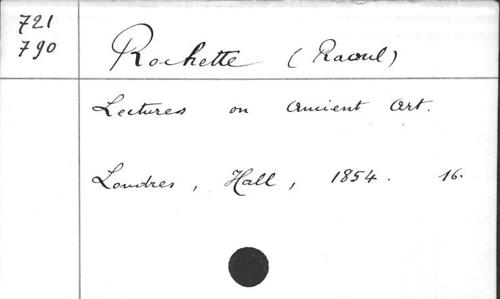 721
790
Rochette (Raoul)
Lectures on Ancient Art.
Londres, Hall, 1854. 16.